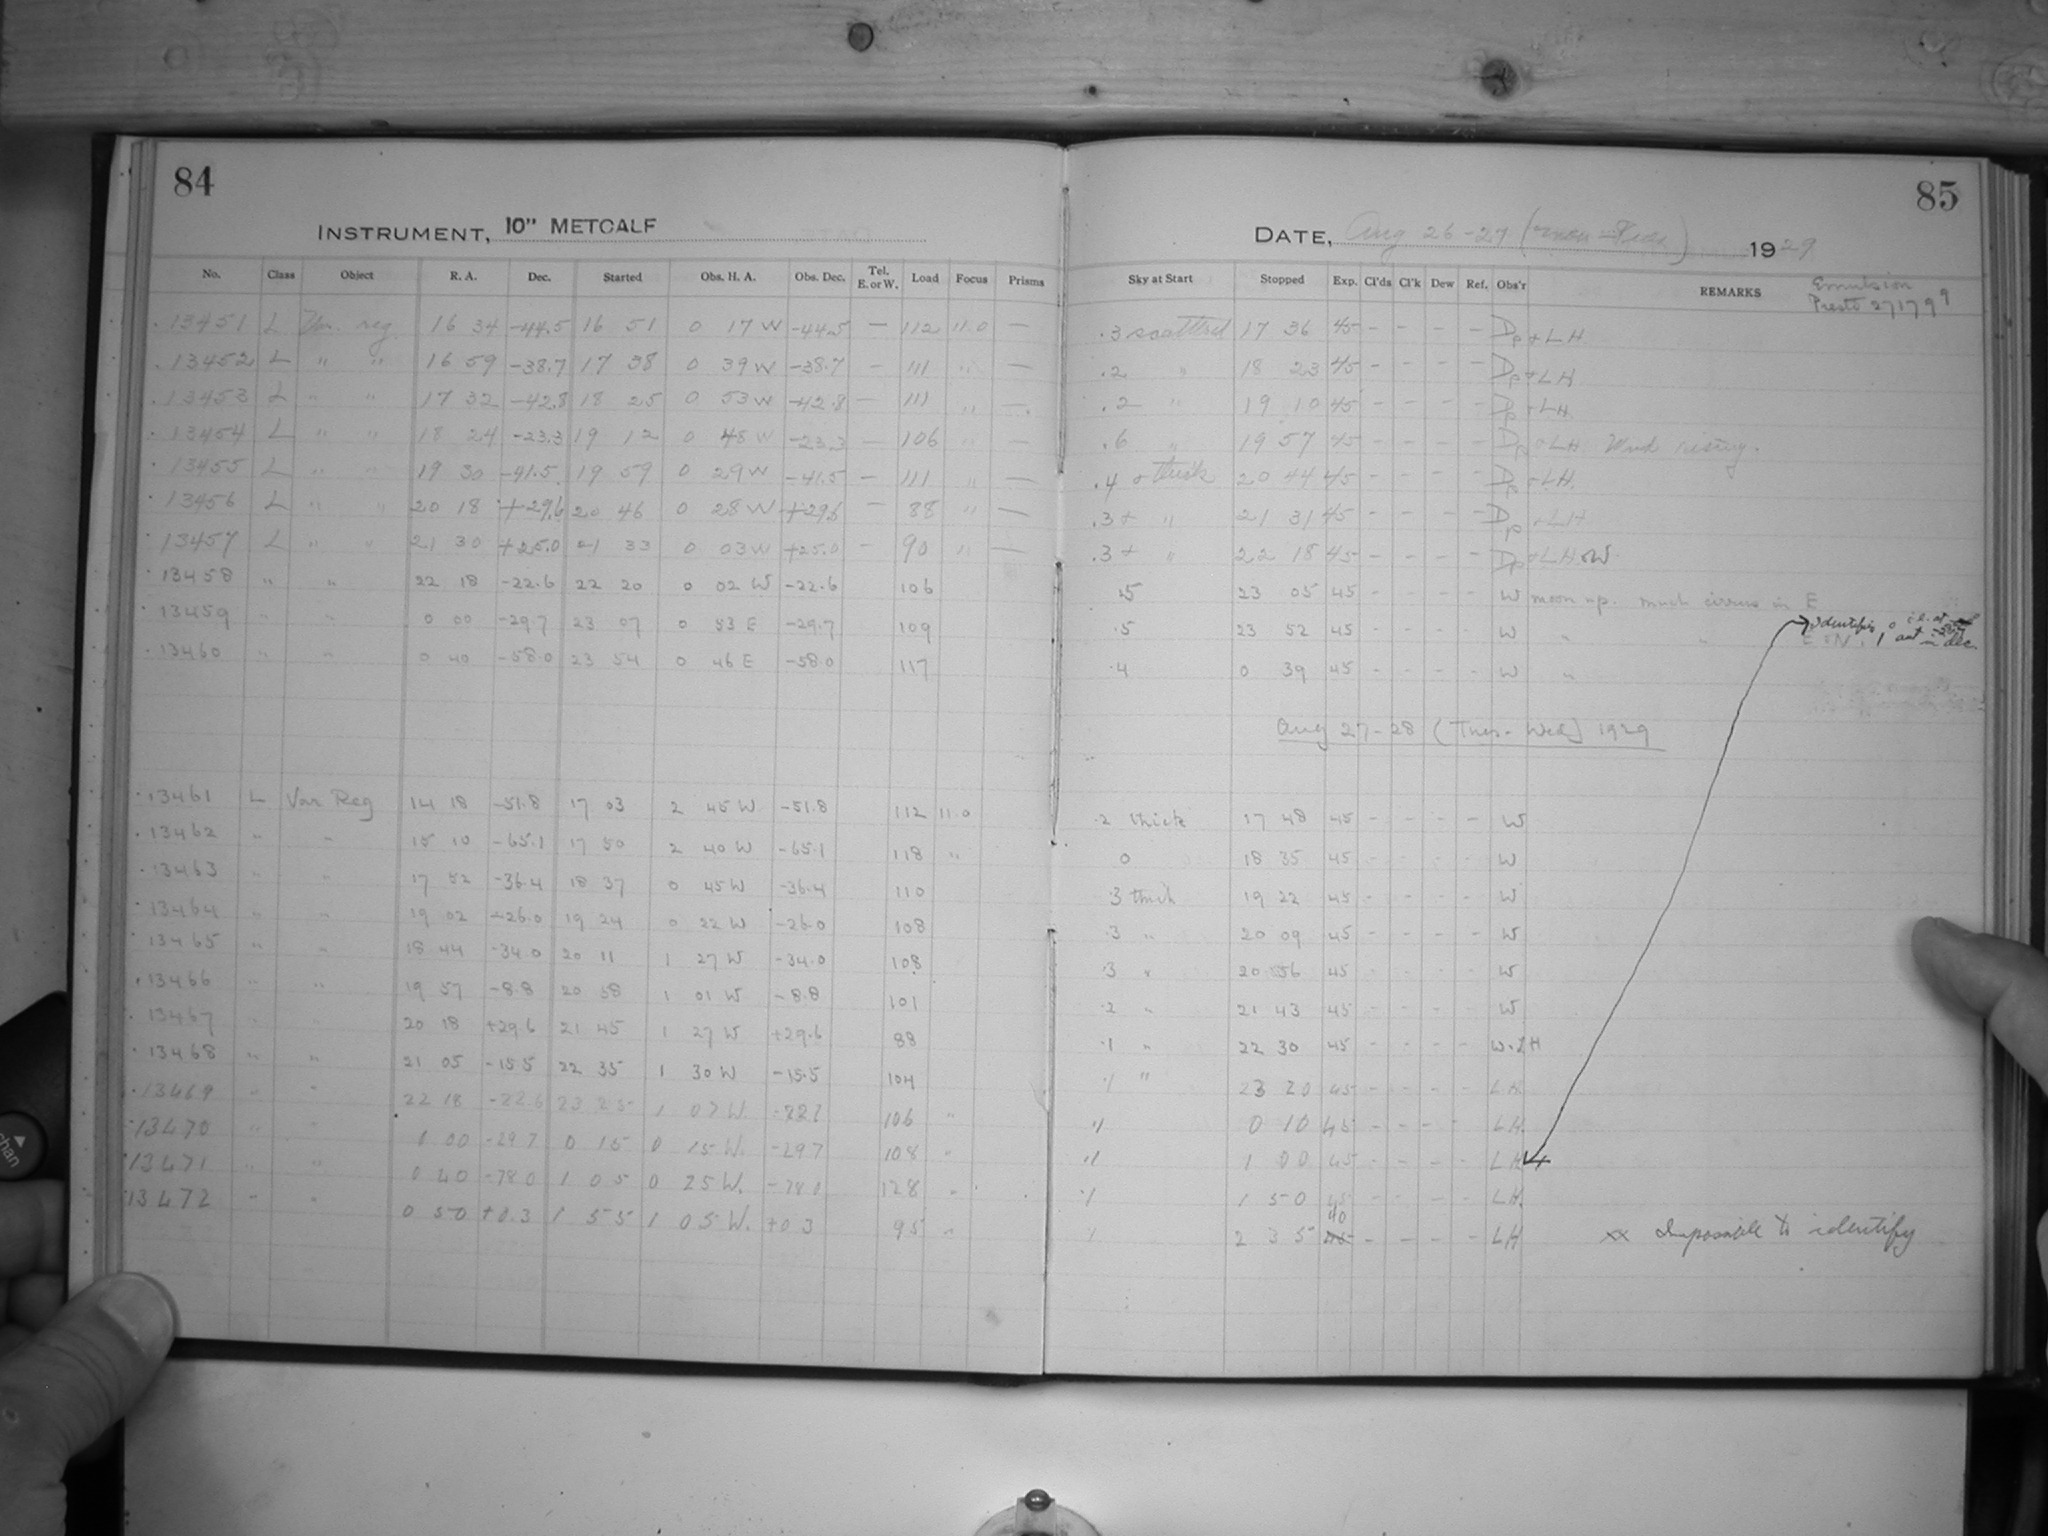 84
INSTRUMENT, 10" METCALF
No. Class Object R. A. Dec. Started Obs. H. A. Obs. Dec. Tel. E. or W. Load Focus Prisms
13451 L Var. reg. 16 34 -44.5 16 51 0 17 W -44.5 — 112 11.0 —
13452 L " " 16 59 -38.7 17 38 0 39 W -38.7 — 111 " —
13453 L " " 17 32 -42.8 18 25 0 53 W -42.8 — 111 " —
13454 L " " 18 24 -23.3 19 12 0 48 W -23.3 — 106 " —
13455 L " " 19 30 -41.5 19 59 0 29 W -41.5 — 111 " —
13456 L " " 20 18 +29.6 20 46 0 28 W +29.6 — 88 " —
13457 L " " 21 30 +25.0 21 33 0 03 W +25.0 — 90 " —
13458 " " 22 18 -22.6 22 20 0 02 W -22.6 106
13459 " " 0 00 -29.7 23 07 0 53 E -29.7 109
13460 " " 0 40 -58.0 23 54 0 46 E -58.0 117
13461 L Var Reg 14 18 -51.8 17 03 2 45 W -51.8 112 11.0
13462 " " 15 10 -65.1 17 50 2 40 W -65.1 118 "
13463 " " 17 52 -36.4 18 37 0 45 W -36.4 110
13464 " " 19 02 -26.0 19 24 0 22 W -26.0 108
13465 " " 18 44 -34.0 20 11 1 27 W -34.0 108
13466 " " 19 57 -8.8 20 58 1 01 W -8.8 101
13467 " " 20 18 +29.6 21 45 1 27 W +29.6 88
13468 " " 21 05 -15.5 22 35 1 30 W -15.5 104
13469 " " 22 18 -22.6 23 25 1 07 W 106 "
13470 " " 0 00 -29.7 0 15 0 15 W. -29.7 108 "
13471 " " 0 40 -78.0 1 05 0 25 W. -78.0 128 "
13472 " " 0 50 +0.3 1 55 1 05 W. +0.3 95 "
85
DATE, Aug 26-27 1929
Sky at Start Stopped Exp. Cl'ds Cl'k Dew Ref. Obs'r REMARKS
Emulsion
Presto 27179
.3 scattered 17 36 45 - - - - Dp + LH
.2 " 18 23 45 - - - - Dp + LH
.2 " 19 10 45 - - - - Dp + LH
.6 " 19 57 45 - - - - Dp + LH Wind rising.
.4 + thick 20 44 45 - - - - Dp + LH.
.3 + " 21 31 45 - - - - Dp + LH
.3 + " 22 18 45 - - - - Dp + LH + W
.5 23 05 45 - - - - W moon up. much cirrus in E
.5 23 52 45 - - - - W " "
identifies
1 out in dec.
.4 0 39 45 - - - - W "
Aug 27-28 (Tues-Wed) 1929
.2 thick 17 48 45 - - - - W
0 18 35 45 - - - - W
.3 thick 19 22 45 - - - - W
.3 " 20 09 45 - - - - W
.3 " 20 56 45 - - - - W
.2 " 21 43 45 - - - - W
.1 " 22 30 45 - - - - W.LH
.1 " 23 20 45 - - - - LH
.1 0 10 45 - - - - LH.
.1 1 00 45 - - - - LH
.1 1 50 45 - - - - LH.
2 35 40 - - - - LH xx Impossible to identify